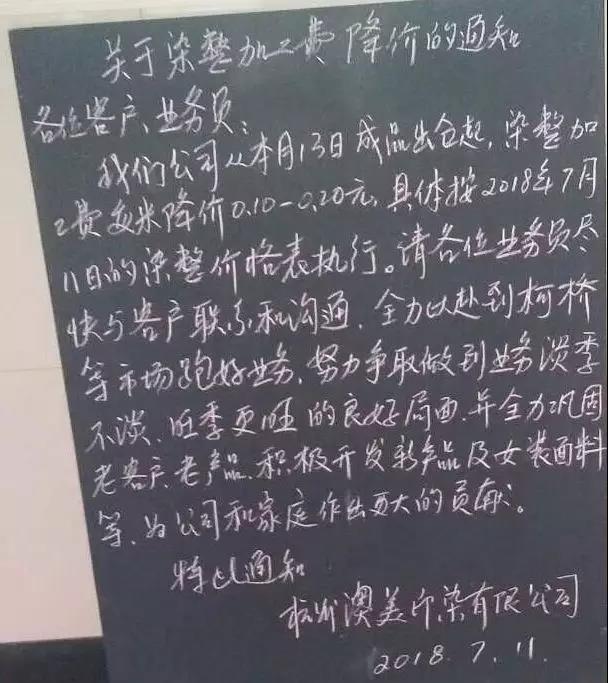 关于染整加工费降价的通知
各位客户、业务员:
我们公司从本月13日成品出仓起,染整加
工费每米降价0.10-0.20元,具体按2018年7月
11日的染整价格表执行。请各位业务员尽
快与客户联系和沟通,全力以赴到柯桥
等市场跑好业务,努力争取做到业务淡季
不淡、旺季更旺的良好局面,并全力巩固
老客户、老产品,积极开发新产品及女装面料
等,为公司和家庭作出更大的贡献。
特此通知
杭州澳美印染有限公司
2018.7.11.